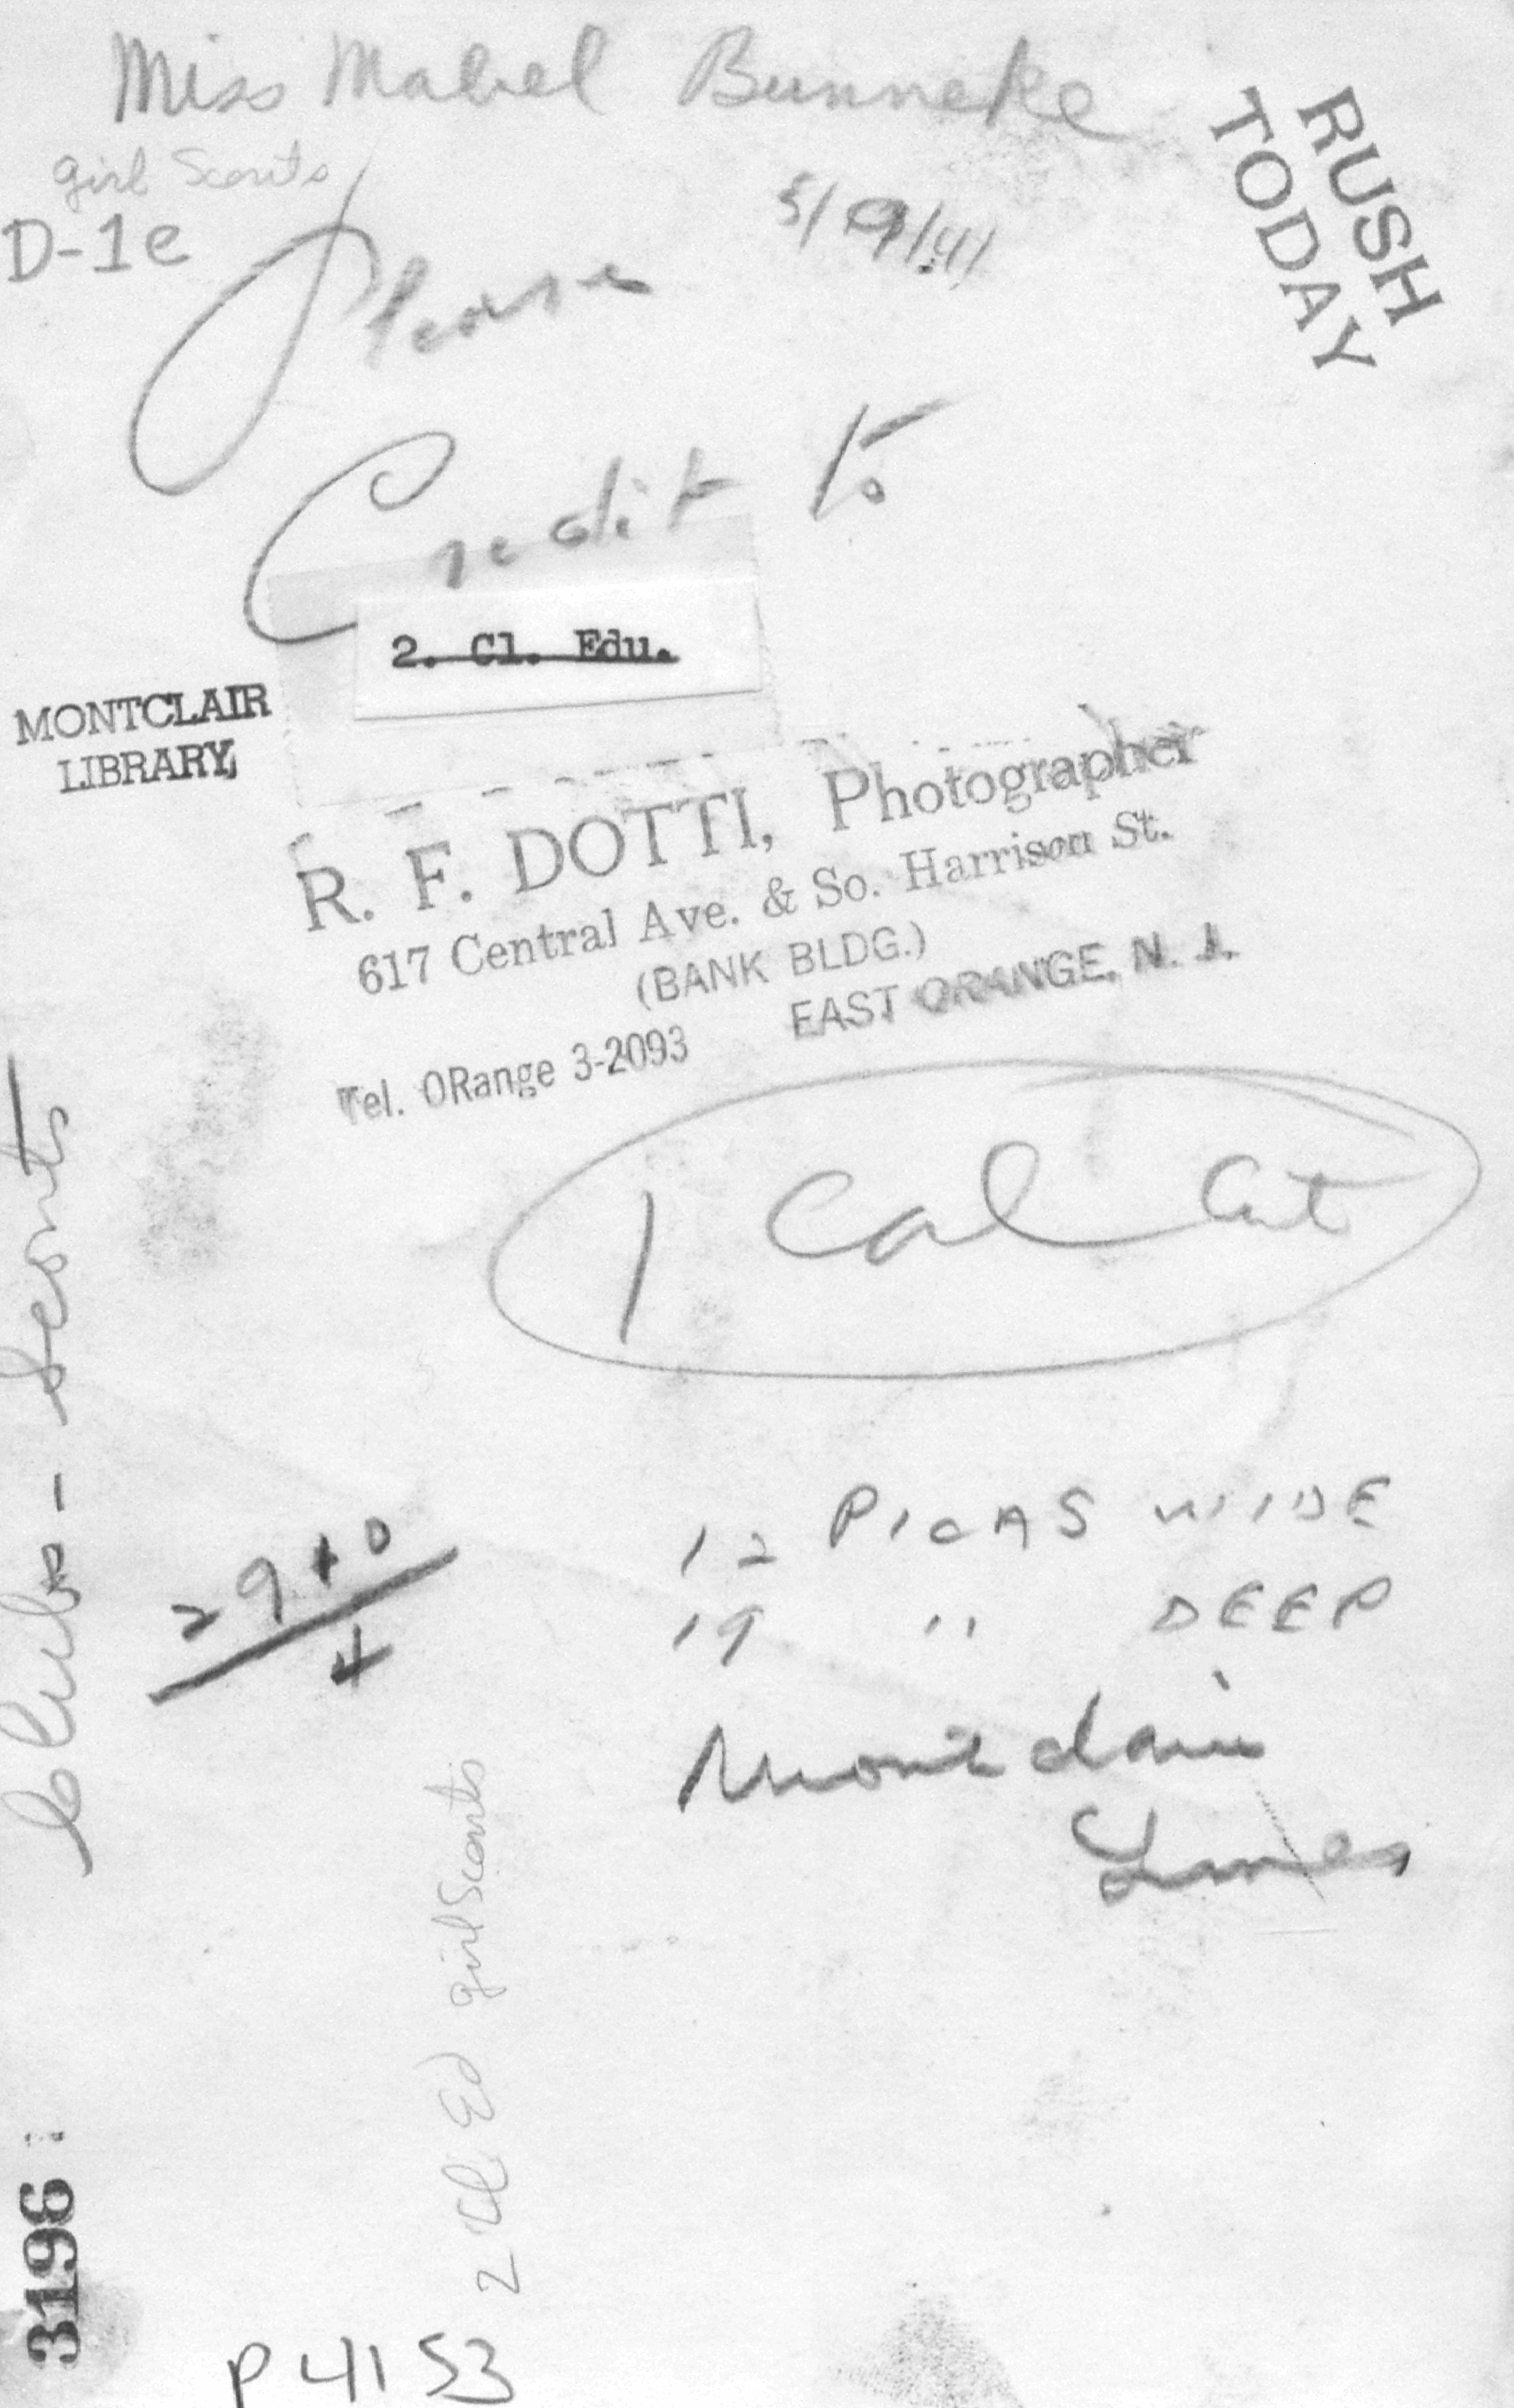 Miss Mabel Bunneke
RUSH
TODAY
Girl Scouts
D-1e
5/9/41
Please
Credit to
2. Cl. Edu.
MONTCLAIR
LIBRARY
R. F. DOTTI, Photographer
617 Central Ave. & So. Harrison St.
(BANK BLDG.)
EAST ORANGE, N. J.
Tel. ORange 3-2093
1 Col Cut
Clubs - Scouts
12 PICAS WIDE
19 " DEEP
Montclair
Times
2 Cl Ed girl Scouts
3196
P4153